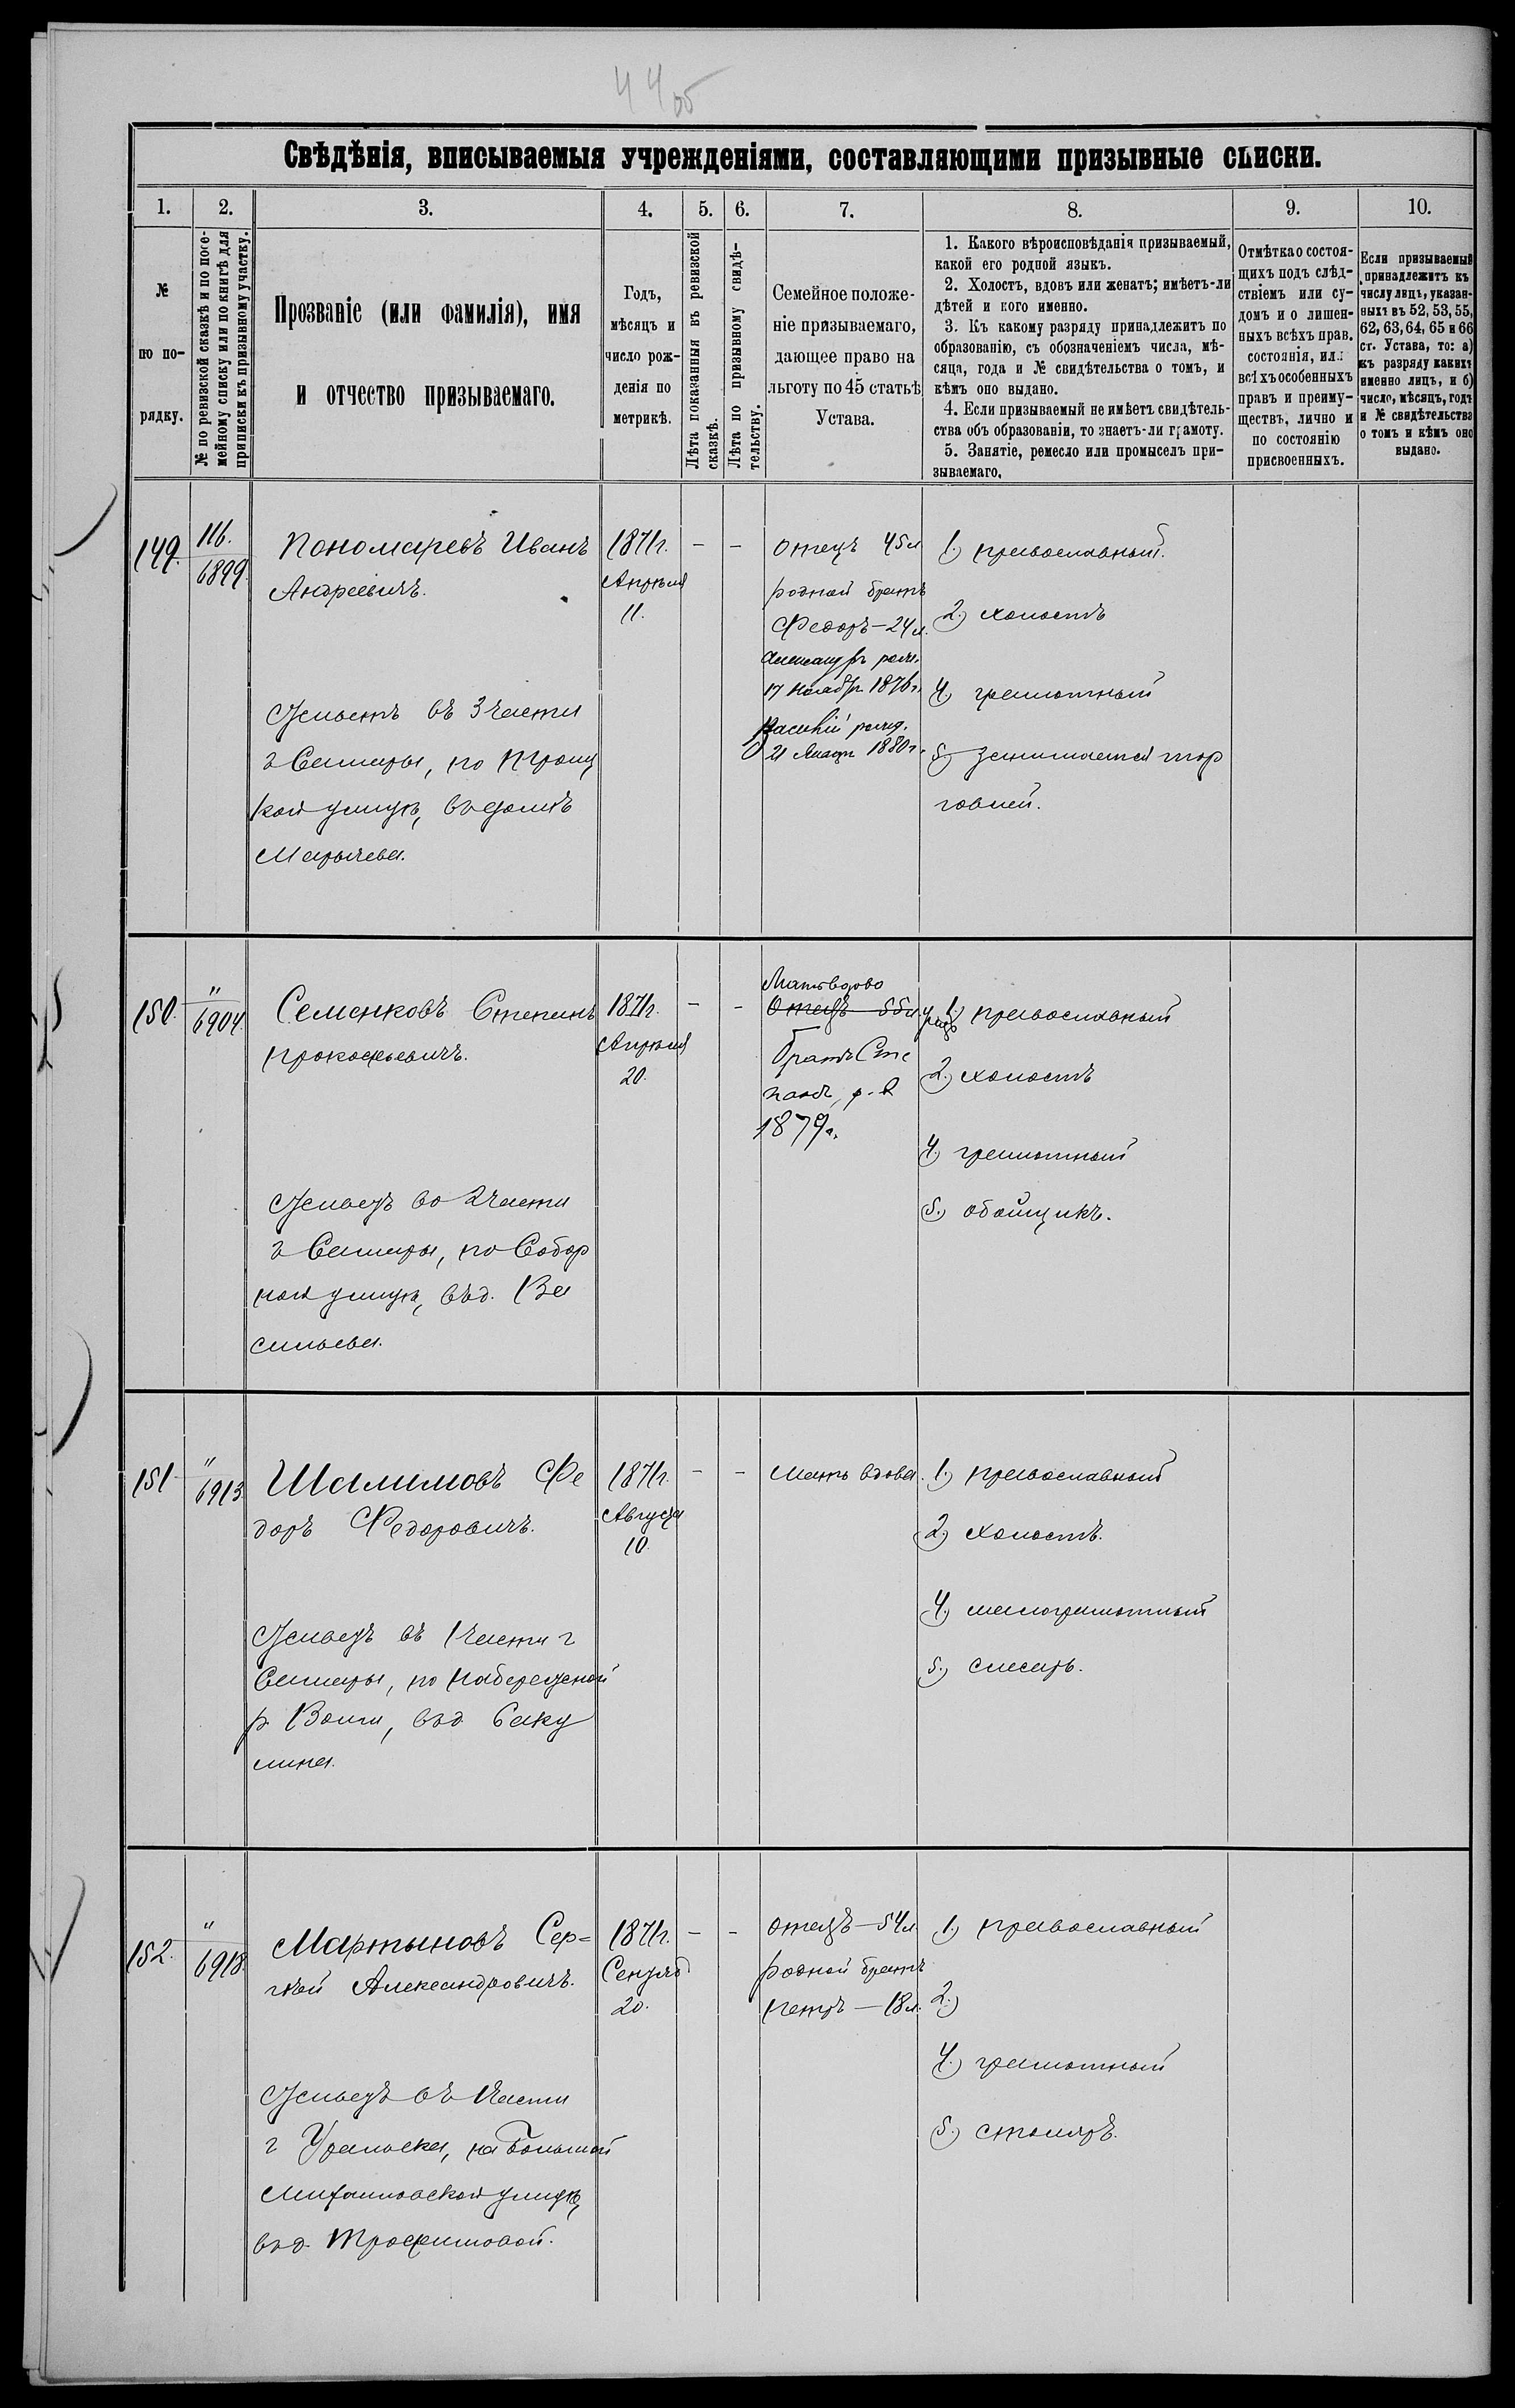 44об
Свѣдѣнія, вписываемыя учрежденіями, составляющими призывные списки.
1. 2. 3. 4. 5. 6. 7. 8. 9. 10.
№
по по-
рядку.
№ по ревизской сказкѣ и по посе-
мейному списку или по книгѣ для
приписки къ призывному участку.
Прозваніе (или фамилія), имя
и отчество призываемаго.
Годъ,
мѣсяцъ и
число рож-
денія по
метрикѣ.
Лѣта показанныя въ ревизской
сказкѣ.
Лѣта по призывному свидѣ-
тельству.
Семейное положе-
ніе призываемаго,
дающее право на
льготу по 45 статьѣ
Устава.
1. Какого вѣроисповѣданія призываемый,
какой его родной языкъ.
2. Холостъ, вдовъ или женатъ; имѣетъ-ли
дѣтей и кого именно.
3. Къ какому разряду принадлежитъ по
образованію, съ обозначеніемъ числа, мѣ-
сяца, года и № свидѣтельства о томъ, и
кѣмъ оно выдано.
4. Если призываемый не имѣетъ свидѣтель-
ства объ образованіи, то знаетъ-ли грамоту.
5. Занятіе, ремесло или промыселъ при-
зываемаго.
Отмѣтка о состоя-
щихъ подъ слѣд-
ствіемъ или су-
домъ и о лишен-
ныхъ всѣхъ прав.
состоянія, или
всѣхъ особенныхъ
правъ и преиму-
ществъ, лично и
по состоянію
присвоенныхъ.
Если призываемый
принадлежитъ къ
числу лицъ, указан-
ныхъ въ 52, 53, 55,
62, 63, 64, 65 и 66
ст. Устава, то: а)
къ разряду какихъ
именно лицъ, и б)
число, мѣсяцъ, годъ
и № свидѣтельства
о томъ и кѣмъ оно
выдано.
149.
116.
6899.
Пономаревъ Иванъ
Андреевичъ.
Живетъ въ 3 части
г Самары, по Троиц
кой улицѣ, въ домѣ
Марычева.
1871г.
Апрѣля
11.
– –
Отецъ 45 л
родной братъ
Федоръ – 24 л.
Александръ родил.
17 Ноябр. 1876 г.
Василій родил.
21 Январ 1880 г.
1.) православный.
2.) холостъ
4.) грамотный
5.) занимается тор
говлей.
150.
"
6904
Семенковъ Степанъ
Прокофьевичъ.
Живетъ во 2 части
г Самары, по Собор
ной улицѣ, въ д. Ва
сильева.
1871г.
Апрѣля
20.
– –
Мать вдова
Отецъ 55 л
Братъ Сте
панъ, р. въ
1879 г.
1.) православный
2.) холостъ
4.) грамотный
5.) обойщикъ.
151
"
6913
Шалимовъ Фе
доръ Федоровичъ.
Живетъ въ 1 части г
Самары, по Набережной
р. Волги, въ д. Саку
лина.
1871г.
Августа
10.
– –
Мать вдова.
1.) православный
2.) холостъ.
4.) малограмотный
5.) слесарь.
152.
"
6918.
Мартыновъ Сер=
гѣй Александровичъ.
Живетъ въ 1 части
г Уральска, на Большой
Михайловской улицѣ,
въ д. Трофимовой.
1871г.
Сентяб
20.
– –
Отецъ – 54 л
родной братъ
Петръ – 18 л.
1.) православный
2.)
4.) грамотный
5.) столяръ.